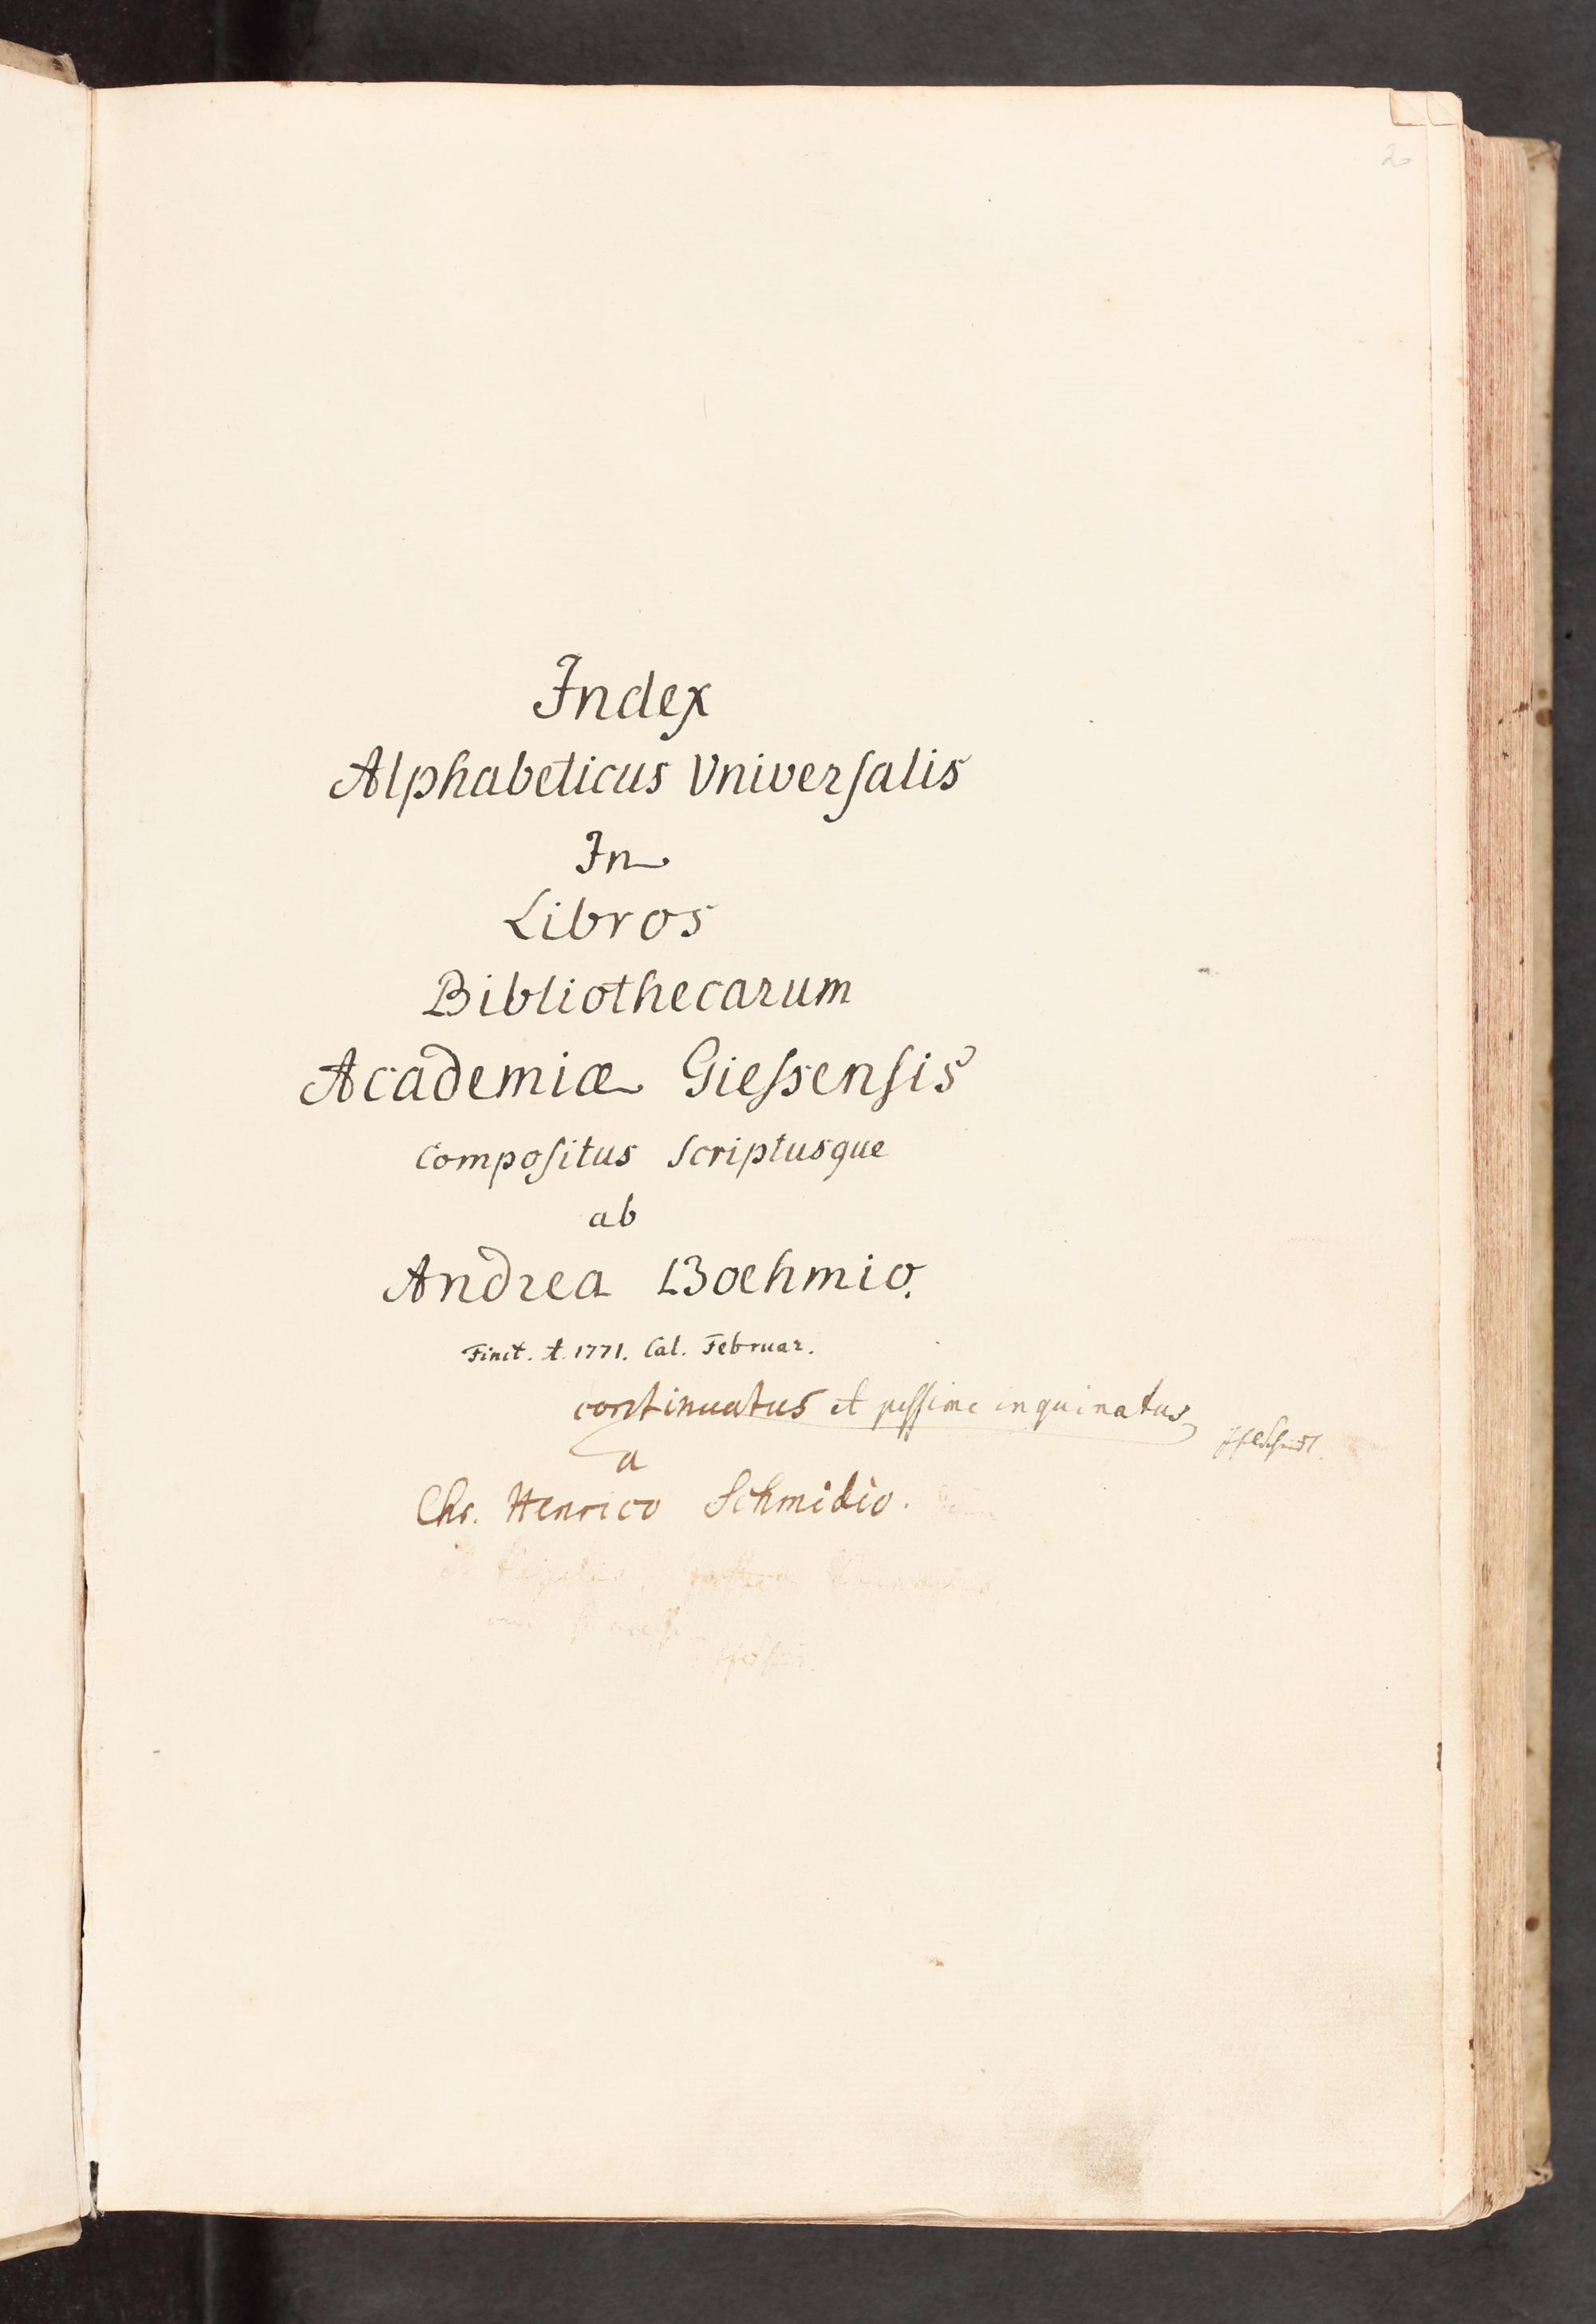 2
Index
Alphabeticus Vniverſalis
In
Libros
Bibliothecarum
Academiæ Gieſsenſis
Compoſitus Scriptusque
ab
Andrea Boehmio.
Finit. A. 1771. Cal. Februar.
continuatus et peſſime inquinatus
a
Chr. Henrico Schmidio.